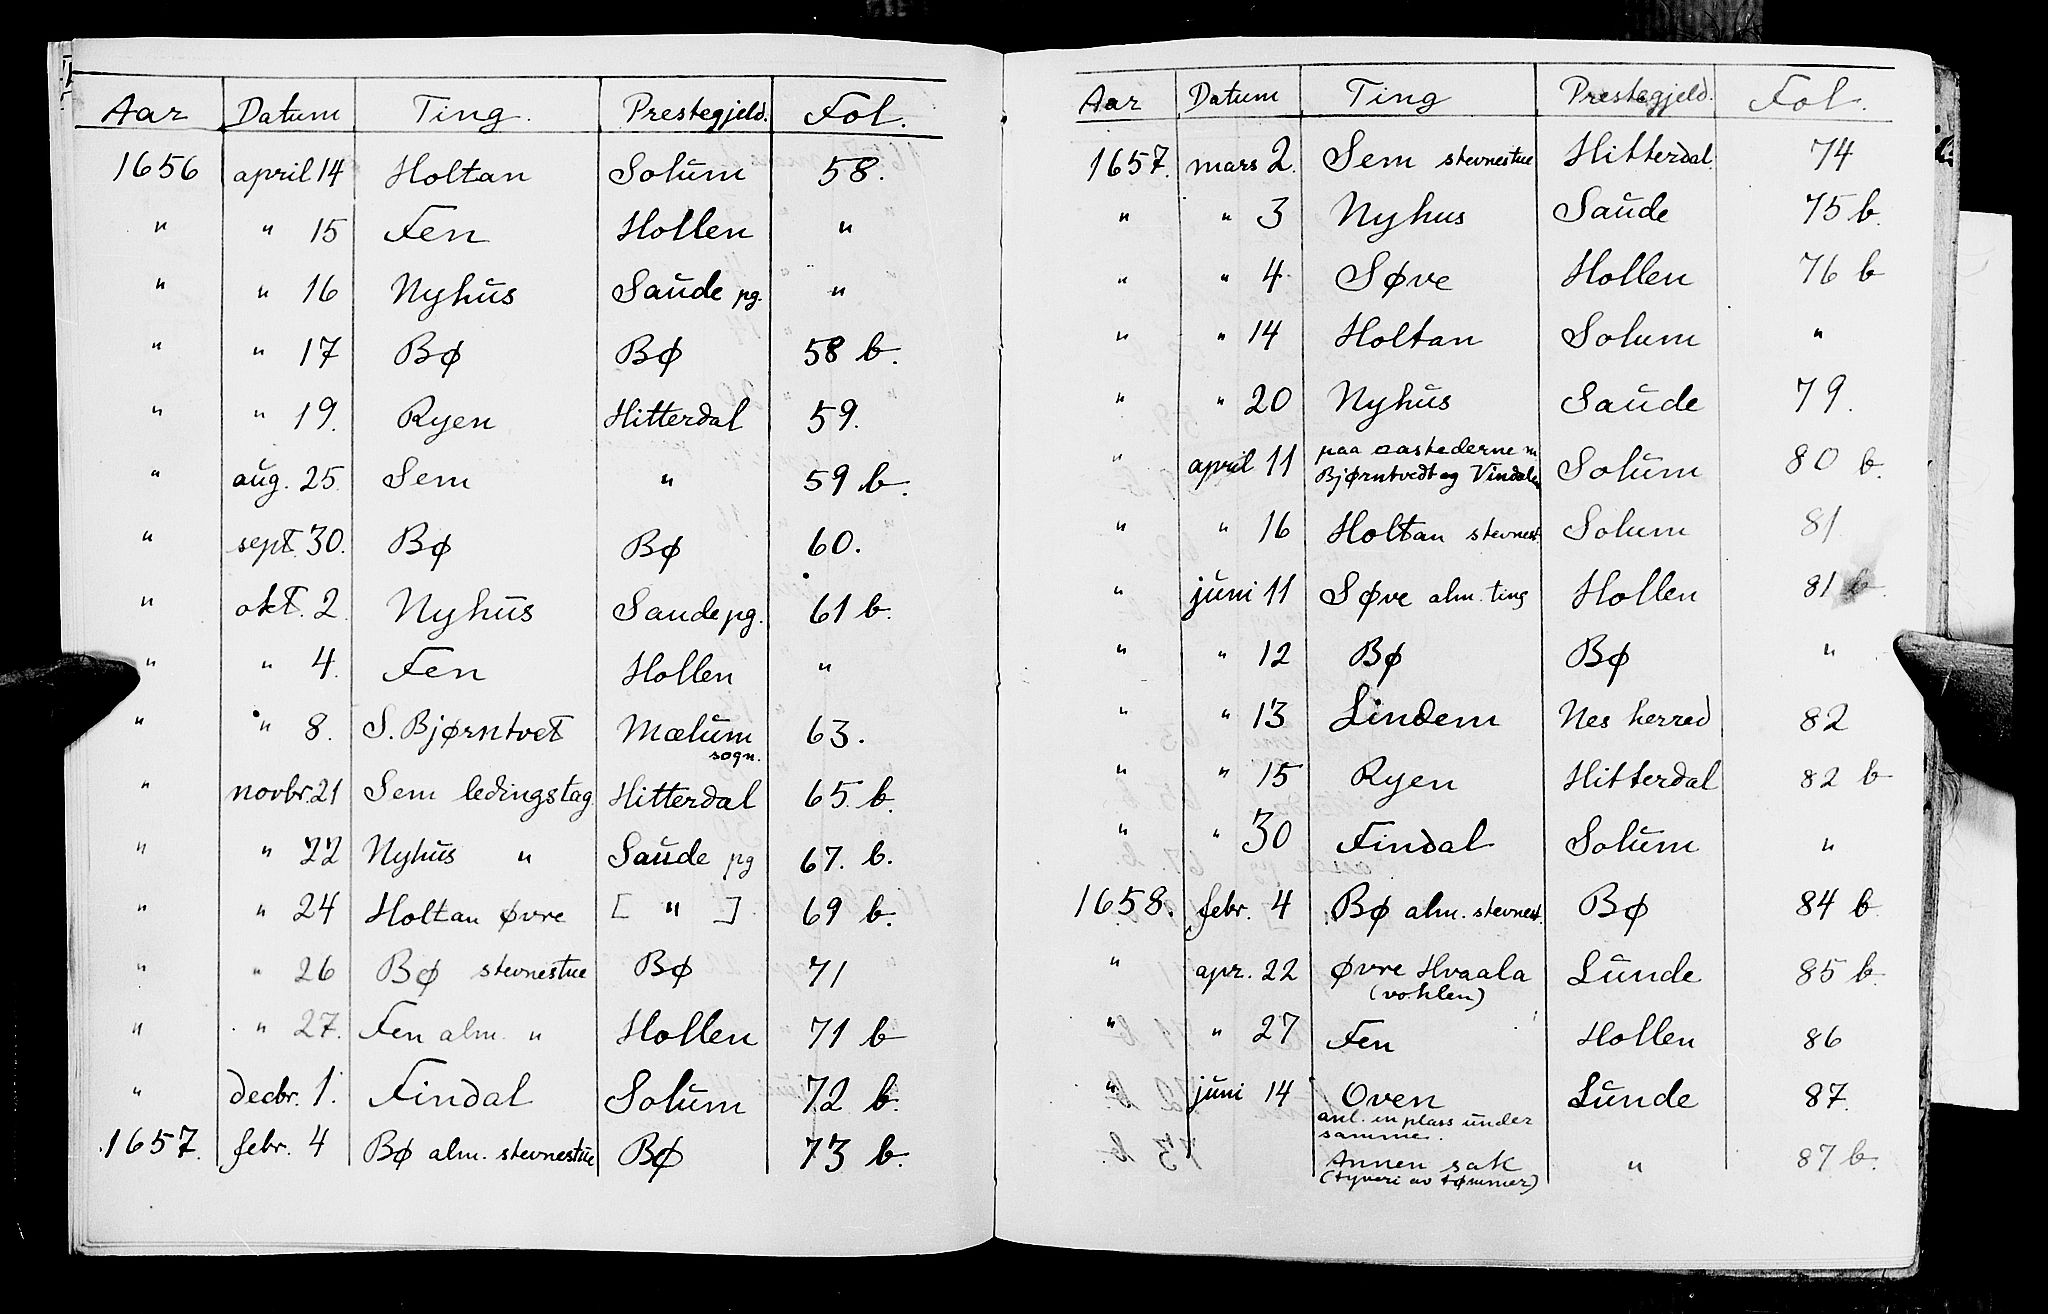 Aar Datum Ting. Prestegjeld. Fol.
1656 april 14 Holtan Solum 58.
" " 15 Fen Hollen "
" " 16 Nyhus Saude pg. "
" " 17 Bø Bø 58 b.
" " 19. Ryen Hitterdal 59.
" aug. 25. Sem " 59 b.
" sept. 30. Bø Bø 60.
" okt. 2. Nyhus Saude pg. 61 b.
" " 4. Fen Hollen "
" " 8. S. Bjørntvet Mælum 63.
sogn.
" novbr. 21 Sem ledingstag Hitterdal 65. b.
" " 22 Nyhus " Saude pg 67. b.
" " 24 Holtan øvre [ " ] 69 b.
" " 26 Bø stevnestue Bø 71
" " 27. Fen alm. " Hollen 71 b
" decbr. 1. Findal Solum 72 b.
1657. febr. 4 Bø alm. stevnestue Bø 73 b.
Aar Datum Ting Prestegjeld. Fol.
1657. mars 2. Sem stevnestue Hitterdal. 74
" " 3 Nyhus Saude 75 b.
" " 4 Søve Hollen 76 b
" " 14 Holtan Solum "
" " 20 Nyhus Saude 79.
" april 11 paa aastederne m Solum 80 b.
Bjørntvedt og Vindalen
" " 16 Holtan stevnest. Solum 81
" juni 11 Søve alm. ting Hollen 81 b.
" " 12 Bø Bø "
" " 13 Lindem Nes herred 82
" " 15 Ryen Hitterdal 82 b
" " 30 Findal Solum "
1658. febr. 4 Bø alm. stevnest. Bø 84 b.
" apr. 22 Øvre Hvaala Lunde 85 b.
(vohlen)
" " 27 Fen Hollen 86
" juni 14 Oven Lunde 87.
anl. in plass under
samme.
Annen sak " 87 b.
(tyveri av tømmer)